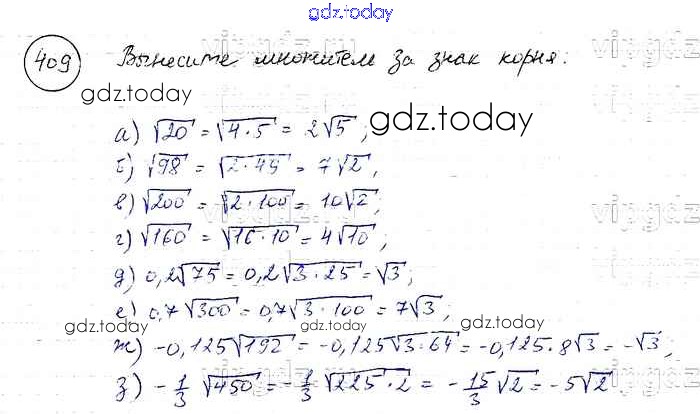 gdz.today
409 Вынесите множитель за знак корня:
gdz.today
а) √20 = √4·5 = 2√5;
gdz.today
б) √98 = √2·49 = 7√2,
в) √200 = √2·100 = 10√2;
г) √160 = √16·10 = 4√10;
д) 0,2√75 = 0,2√3·25 = √3;
е) 0,7√300 = 0,7√3·100 = 7√3;
gdz.today
gdz.today
ж) -0,125√192 = -0,125√3·64 = -0,125·8√3 = -√3;
з) -1/3 √450 = -1/3 √225·2 = -15/3 √2 = -5√2